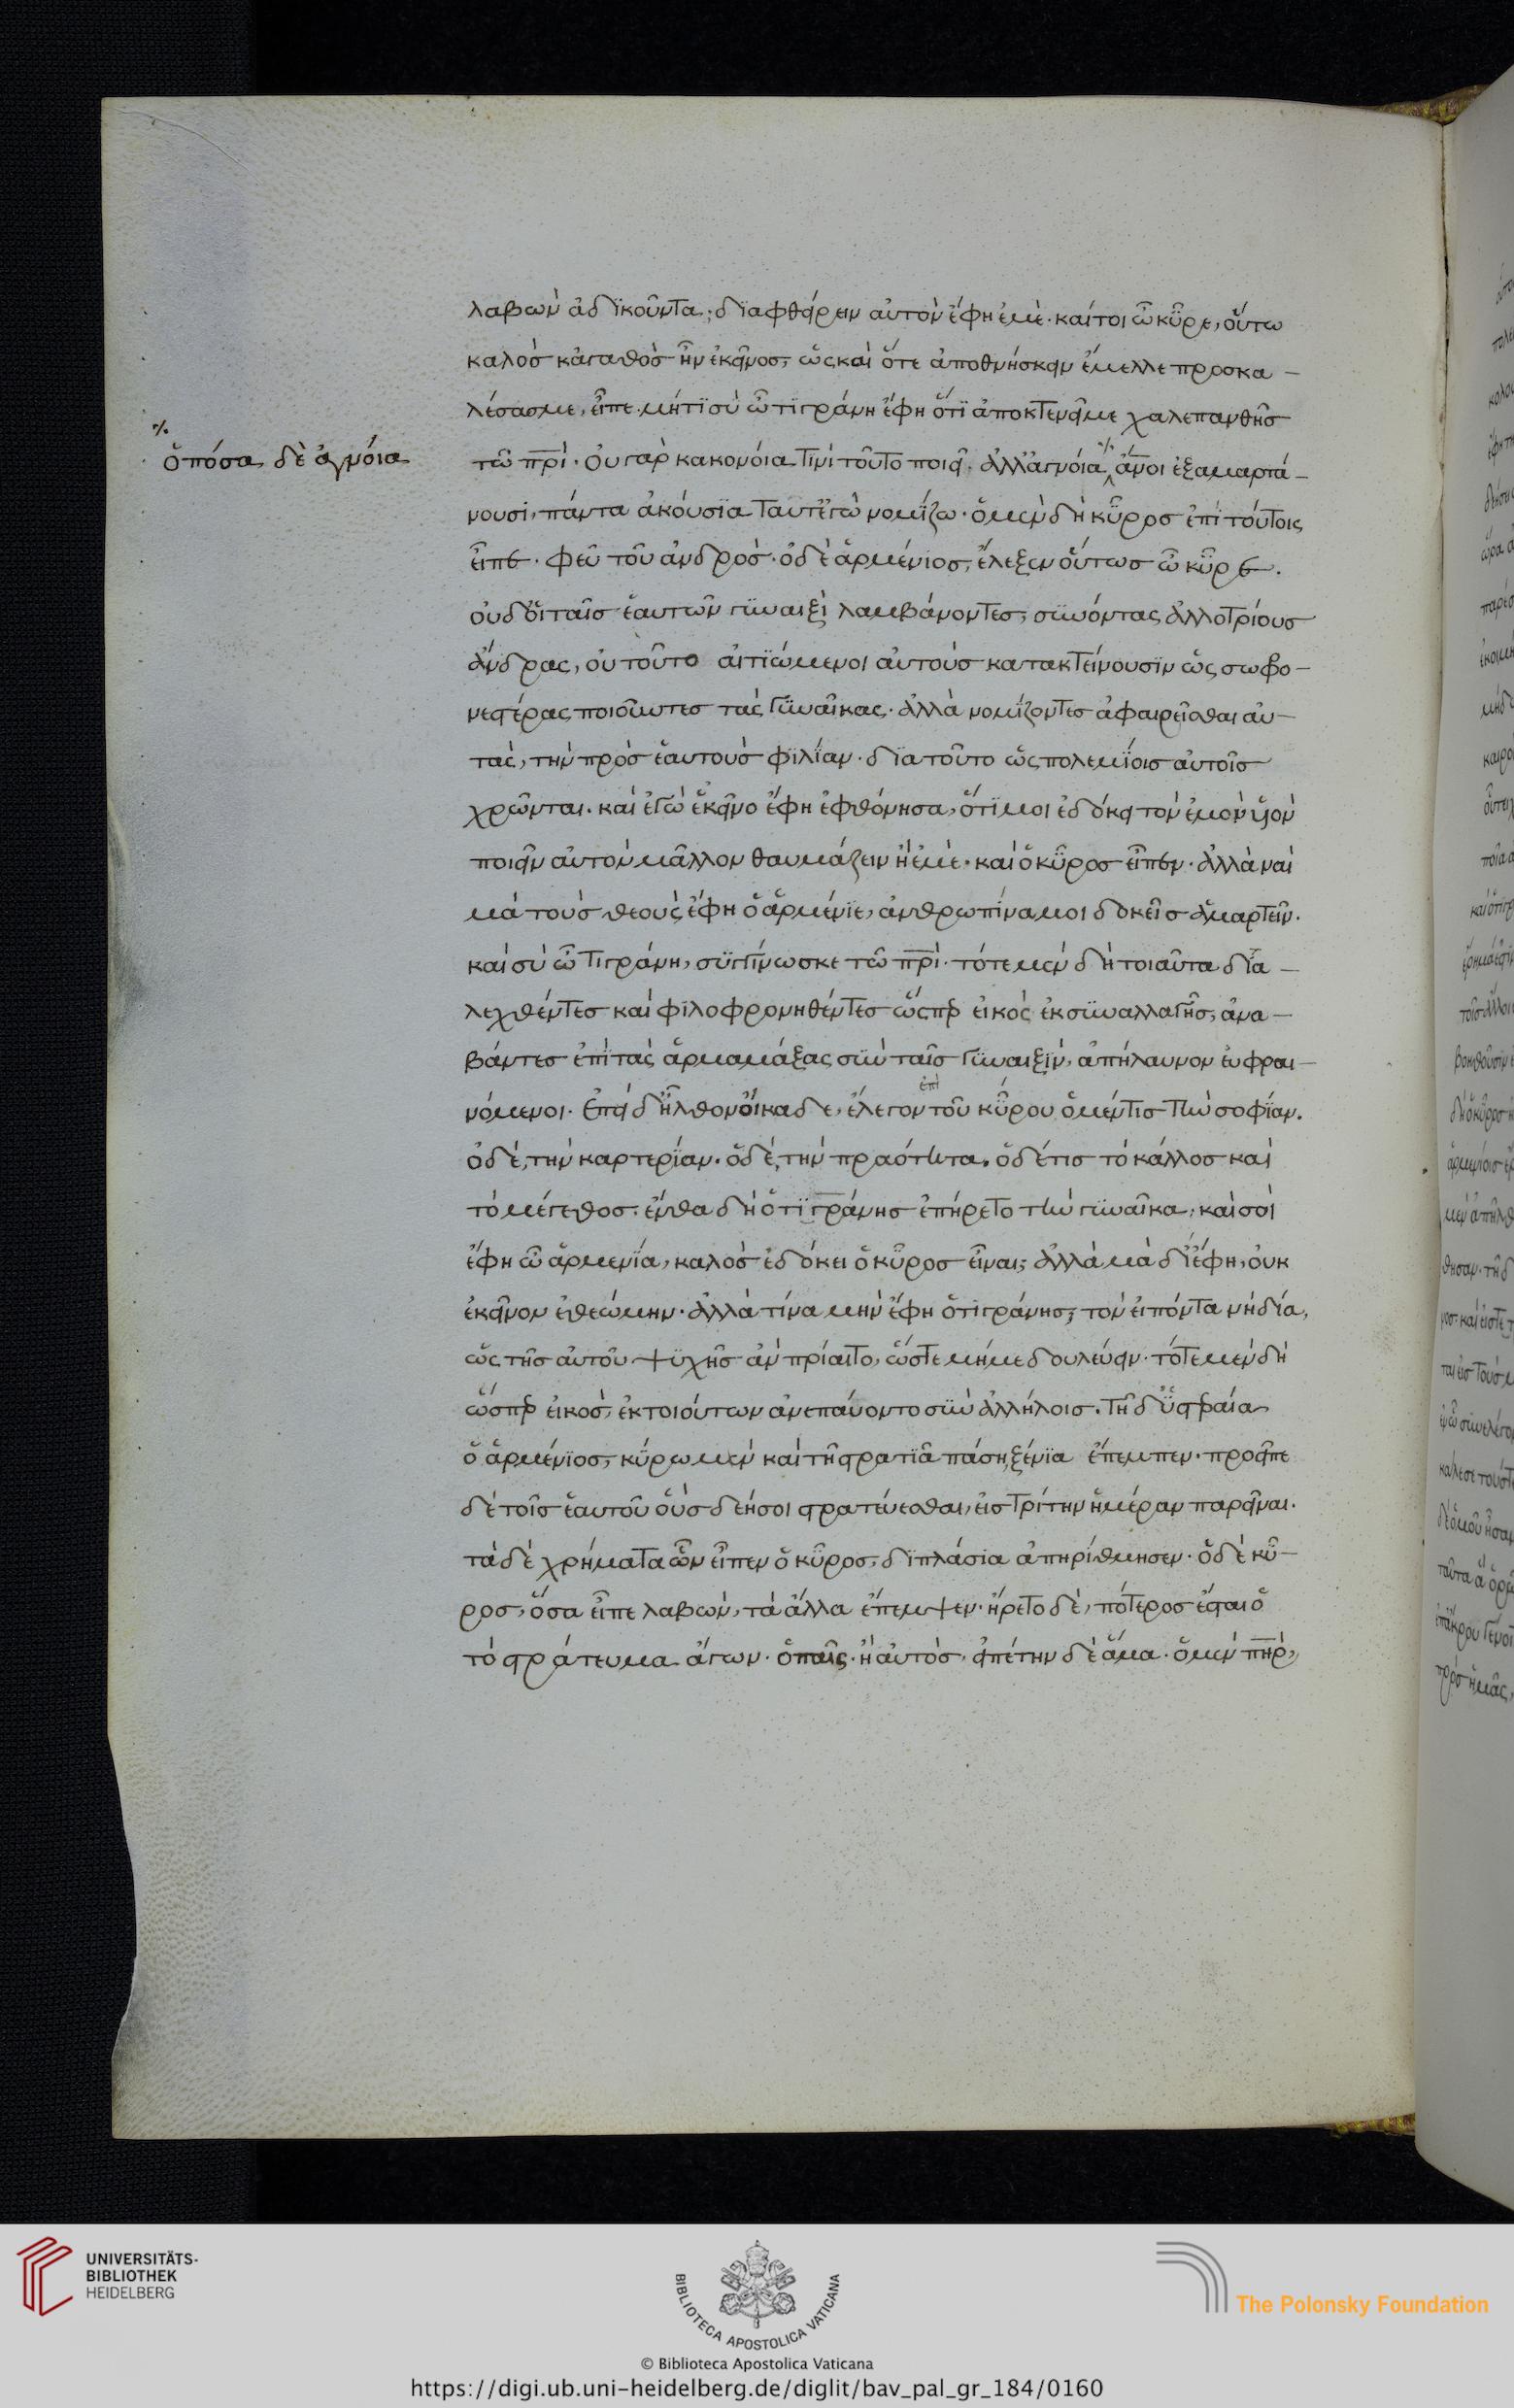 λαβὼν ἀδϊκοῦντα; δϊαφθείρειν αὐτὸν ἔφη ἐμὲ· καίτοι ὦ κῦρε, οὕτω
καλὸσ κἀγαθὸσ ἦν ἐκεῖνοσ, ὡς καὶ ὅτε ἀποθνήσκειν ἔμελλε προσκα-
λέσασ με, εἶπε· μήτϊ σὺ ὦ τϊγράνη ἔφη ὅτϊ ἀποκτενεῖ με χαλεπανθῆσ
⁒
ὁπόσα δὲ ἀγνόια
τῶ πρι̅· ὀυ γὰρ κακονόια τινὶ τοῦτο ποιεῖ. ἀλλ' ἀγνόια ⁒ ἄνοι̅ ἐξαμαρτά-
νουσι, πάντα ἀκόυσϊα ταυτ' ἔγὼ νομίζω· ὁ μὲν δὴ κῦροσ ἐπὶ τόυτοις
εἶπε· φεῦ τοῦ ἀνδρόσ· ὁ δὲ ἁρμένιοσ, ἔλεξεν ὅυτωσ ὦ κῦρε.
ὀυδ' ὅι ταῖσ ἑαυτῶν γϋναιξὶ λαμβάνοντεσ, σϋνόντας ἀλλοτρίουσ
ἄνδρας, ὀυ τοῦτο ἀιτϊώμενοι ἀυτοὺσ κατακτείνουσϊν ὡς σωφο-
νεστέρας ποιοῦντεσ τὰς γϋναῖκας. ἀλλὰ νομίζοντεσ ἀφαιρεῖσθαι ἀυ-
τὰς, τὴν πρὸσ ἑαυτοὺσ φϊλίαν· δϊα τοῦτο ὡς πολεμϊόισ ἀυτοῖσ
χρῶνται. καὶ ἐγὼ ἐκεῖνο ἔφη ἐφθόνησα, ὅτϊ μοι ἐδόκει τὸν ἐμὸν ὑϊὸν
ποιεῖν ἀυτὸν μᾶλλον θαυμάζειν ἢ ἐμὲ· καὶ ὁ κῦροσ εἶπεν. ἀλλὰ ναὶ
μὰ τοὺσ θεοὺς ἔφη ὁ ἁρμένϊε, ἀνθρωπίνα μοι δοκεῖσ ἁμαρτεῖν.
καὶ σὺ ὦ τιγράνη, συγγίνωσκε τῶ πρι̅. τότε μὲν δὴ τοιαῦτα δϊα-
λεχθέντεσ καὶ φϊλοφρονηθέντεσ ὥσπερ εἰκὸς ἐκ σϋναλλαγῆσ, ἀνα-
βάντεσ ἐπϊ τὰς ἁρμαμάξας σϋν ταῖσ γϋναιξὶν, ἀπήλαυνον ἐυφραι-
νόμενοι· ἐπεὶ δ' ἦλθον ὄικαδε, ἔλεγον ἐπὶ τοῦ κῦρου ὁ μέν τισ τὴν σοφϊαν.
ὁ δὲ, τὴν καρτερϊαν. ὁ δὲ, τὴν πραότητα. ὁ δέ τισ τὸ κάλλοσ καὶ
τὸ μέγεθοσ. ἔνθα δὴ ὁ τϊγράνησ ἐπήρετο τὴν γϋναῖκα, καὶ σοὶ
ἔφη ὦ ἁρμενϊα, καλὸσ ἐδόκει ὁ κῦροσ εἶναι; ἀλλὰ μὰ δί' ἔφη, ὀυκ
ἐκεῖνον ἐθεώμην. ἀλλὰ τίνα μὴν ἔφη ὁ τιγράνησ; τὸν ἐιπόντα νὴ δία,
ὡς τῆσ ἁυτοῦ ψϋχῆσ ἂν πρίαιτο, ὥστε μή με δουλεύειν. τότε μὲν δὴ
ὥσπερ ἐικὸσ, ἐκ τοιόυτων ἀνεπάυοντο σϋν ἀλλήλοισ. τῆ δ' ὑστεραία
ὁ ἁρμένϊοσ, κύρω μὲν καὶ τῆ στρατϊᾶ πάση, ξένϊα ἔπεμπεν. προεῖπε
δὲ τοῖσ ἑαυτοῦ ὁὺσ δεήσοι στρατεύεσθαι, ἐισ τρίτην ἡμέραν παρεῖναι.
τὰ δὲ χρήματα ὧν εἶπεν ὁ κῦροσ, δϊπλάσϊα ἀπηρίθμησεν. ὁ δὲ κῦ-
ροσ, ὅσα εἶπε λαβὼν, τὰ ἄλλα ἔπεμψεν. ἤρετο δὲ, πότεροσ ἔσται ὁ
τὸ στράτευμα ἄγων. ὁ παῖς. ἢ ἀυτόσ. ἐιπέτην δὲ ἅμα. ὁ μὲν πηρ̅,
UNIVERSITÄTS-
BIBLIOTHEK
HEIDELBERG
BIBLIOTECA APOSTOLICA VATICANA
The Polonsky Foundation
© Biblioteca Apostolica Vaticana
https://digi.ub.uni-heidelberg.de/diglit/bav_pal_gr_184/0160